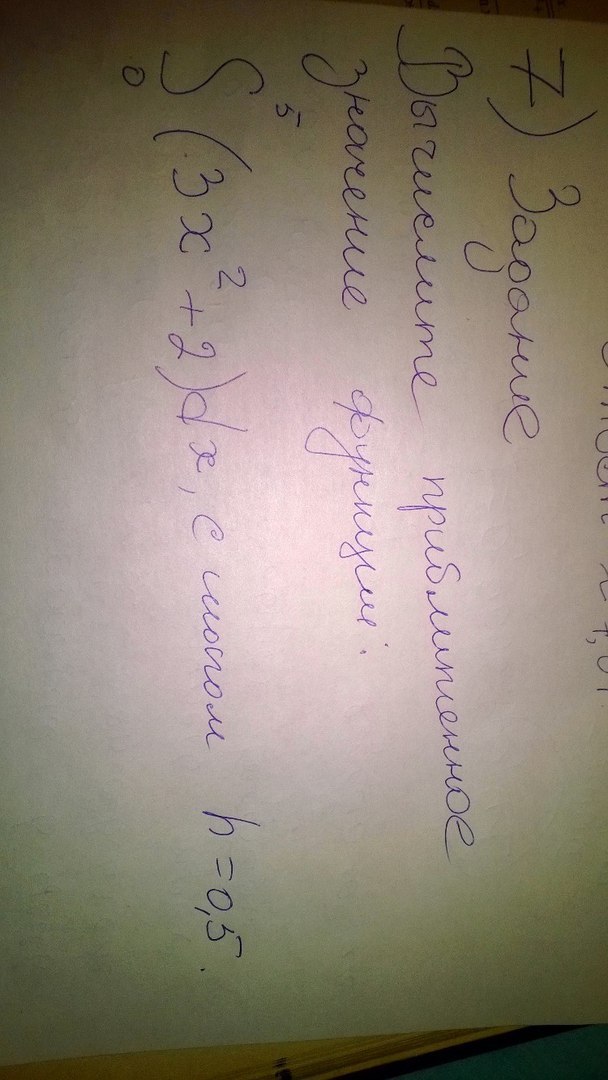 7) Задание
Вычислите приближенное
значение функции:
∫₀⁵ (3x² + 2)dx, с шагом h = 0,5.